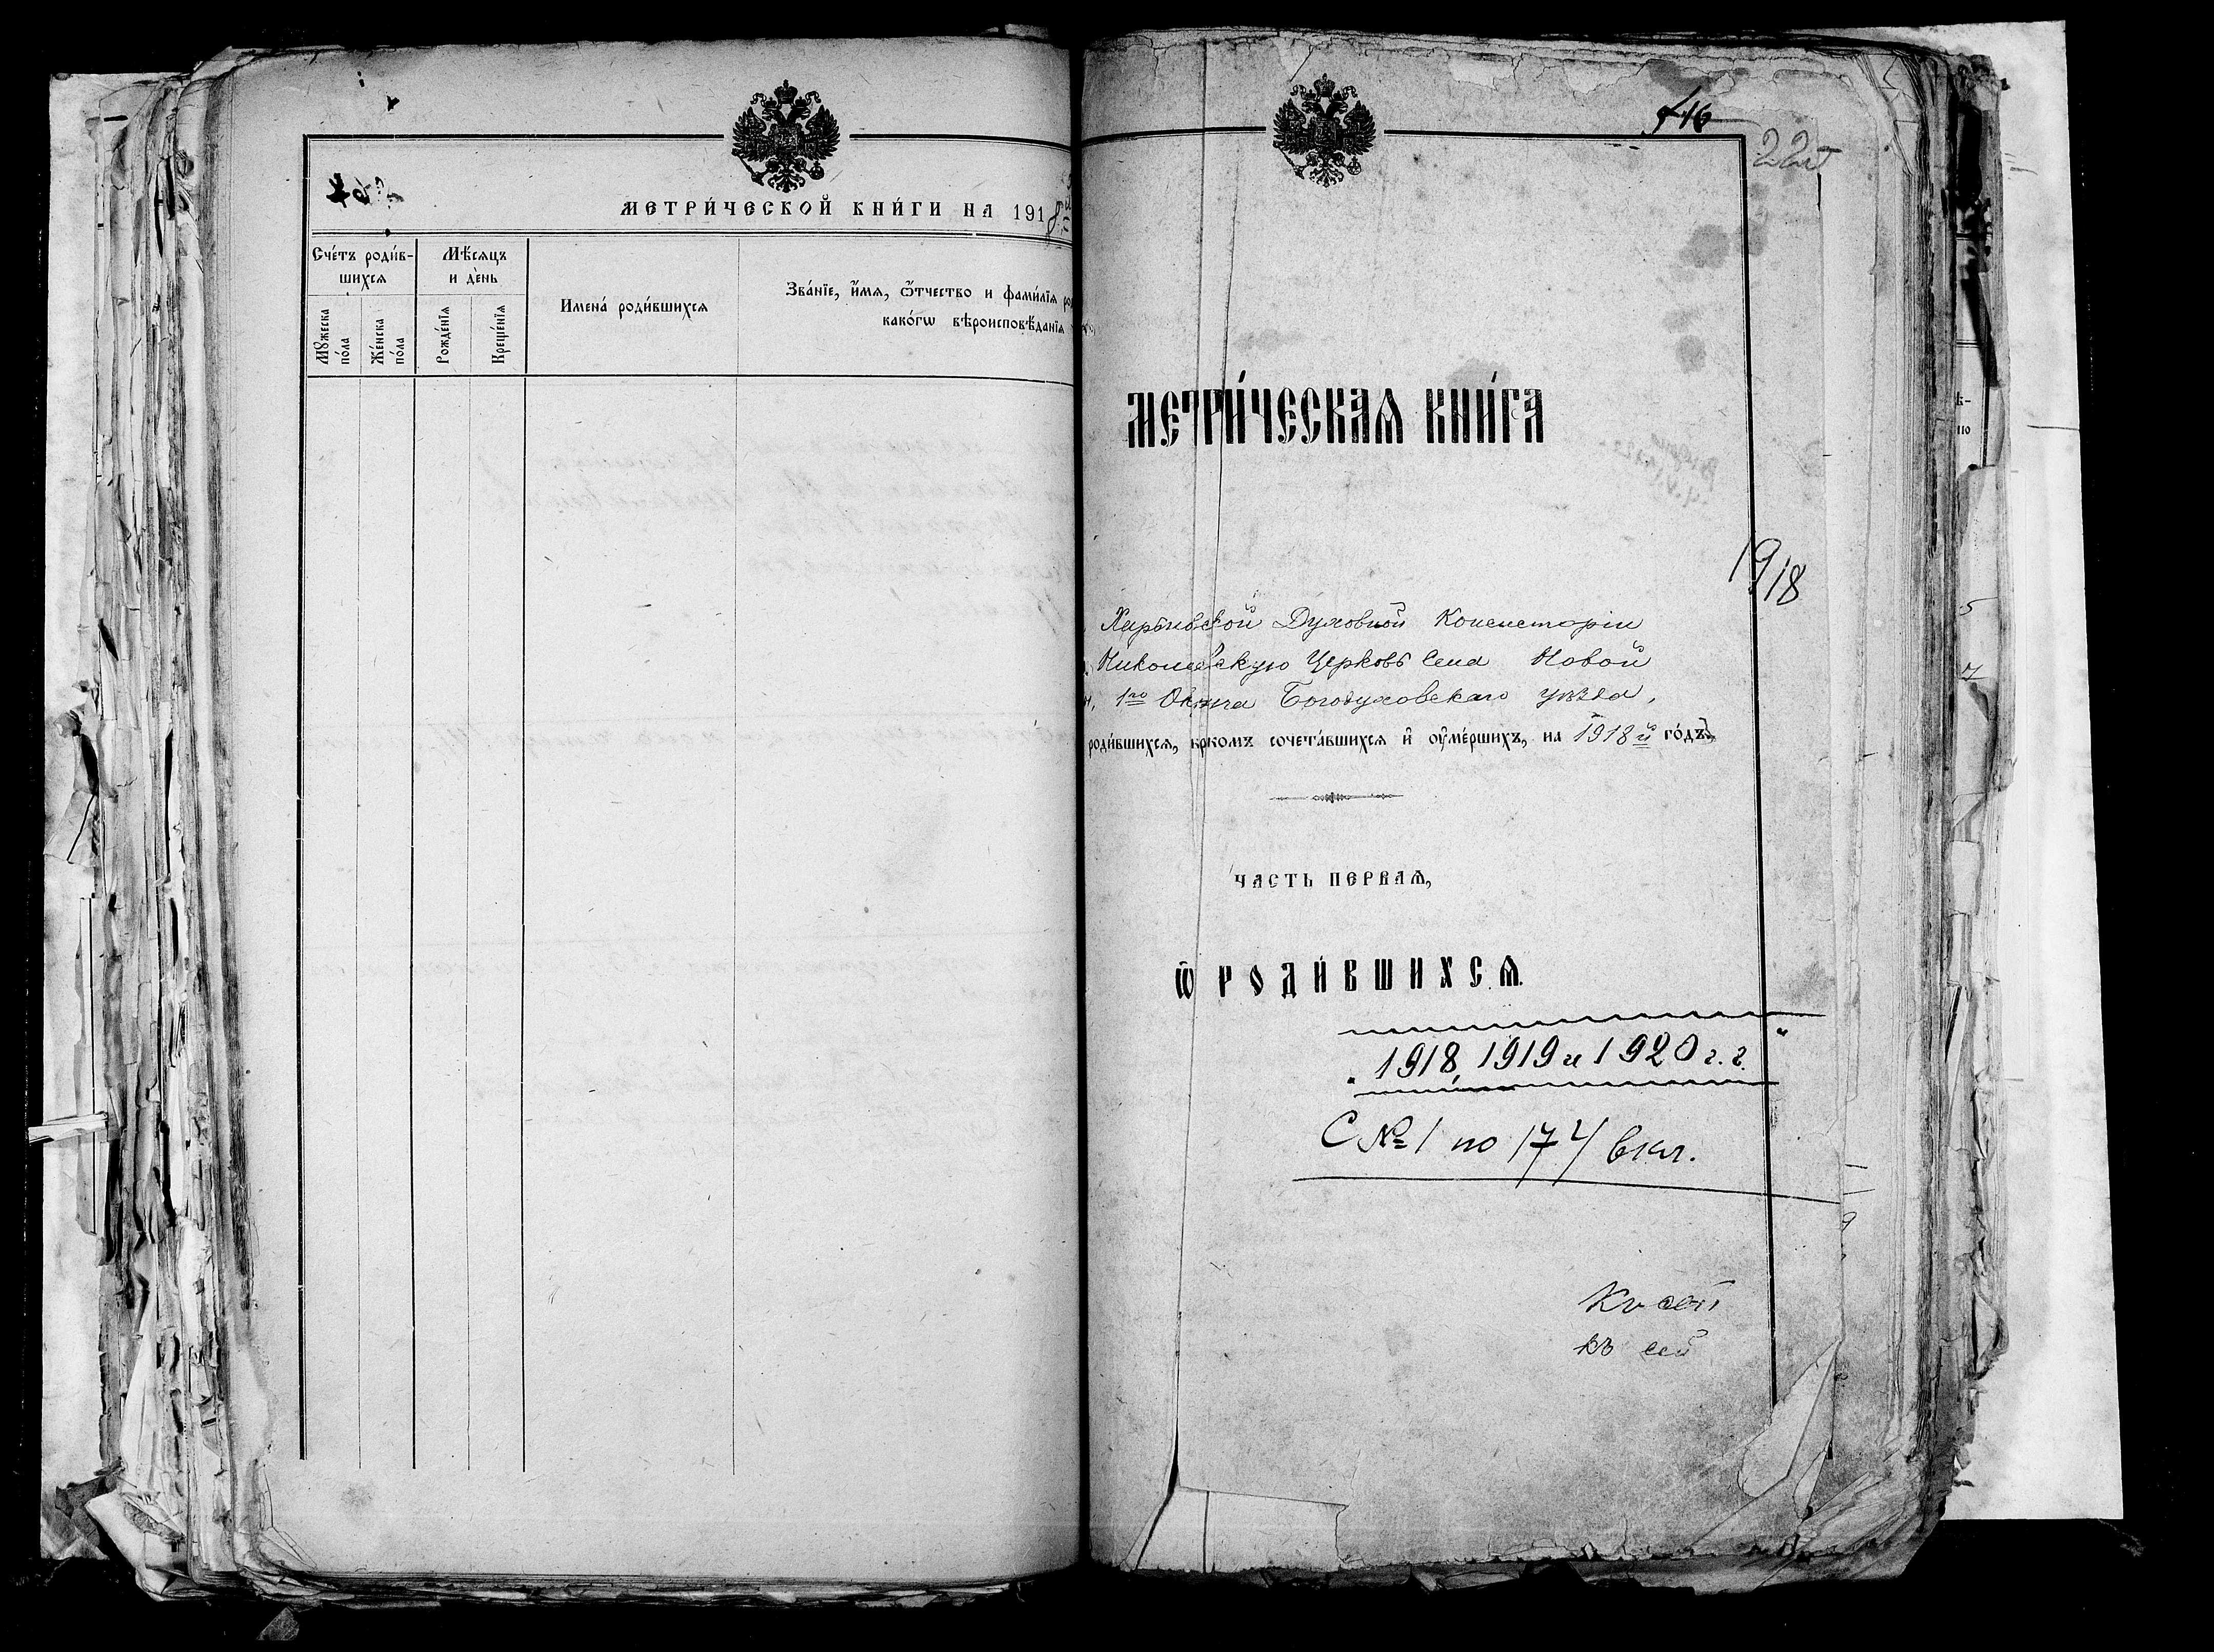 МЕТРИ́ЧЕСКОЙ КНИ́ГИ НА 1918й
Сче́тъ роди́в-
шихся
Мѣ́сяцъ
и де́нь
Имена́ роди́вшихся
Зва́нїе, и҆́мя, ѻ҆́тчество и фами́лїя
како́гѡ вѣроисповѣ́данїя
Мꙋ́жеска
по́ла
Же́нска
по́ла
Рожде́нїѧ
Креще́нїѧ
22
МЕТРИ́ЧЕСКАѦ КНИ́ГА
1918
Харьковской Духовной Консисторіи
Николаевскую Церковь Села Новой
1го Округа Богодуховскаго уѣзда,
роди́вшихся, бракомъ сочета́вшихся и҆ оу҆ме́ршихъ, на 1918й го́дъ
ЧАСТЬ ПЕРВАѦ,
Ѡ҆ РОДИ́ВШИХСѦ.
1918, 1919 и 1920 г.г.
С №1 по 174 вкл.
къ сей